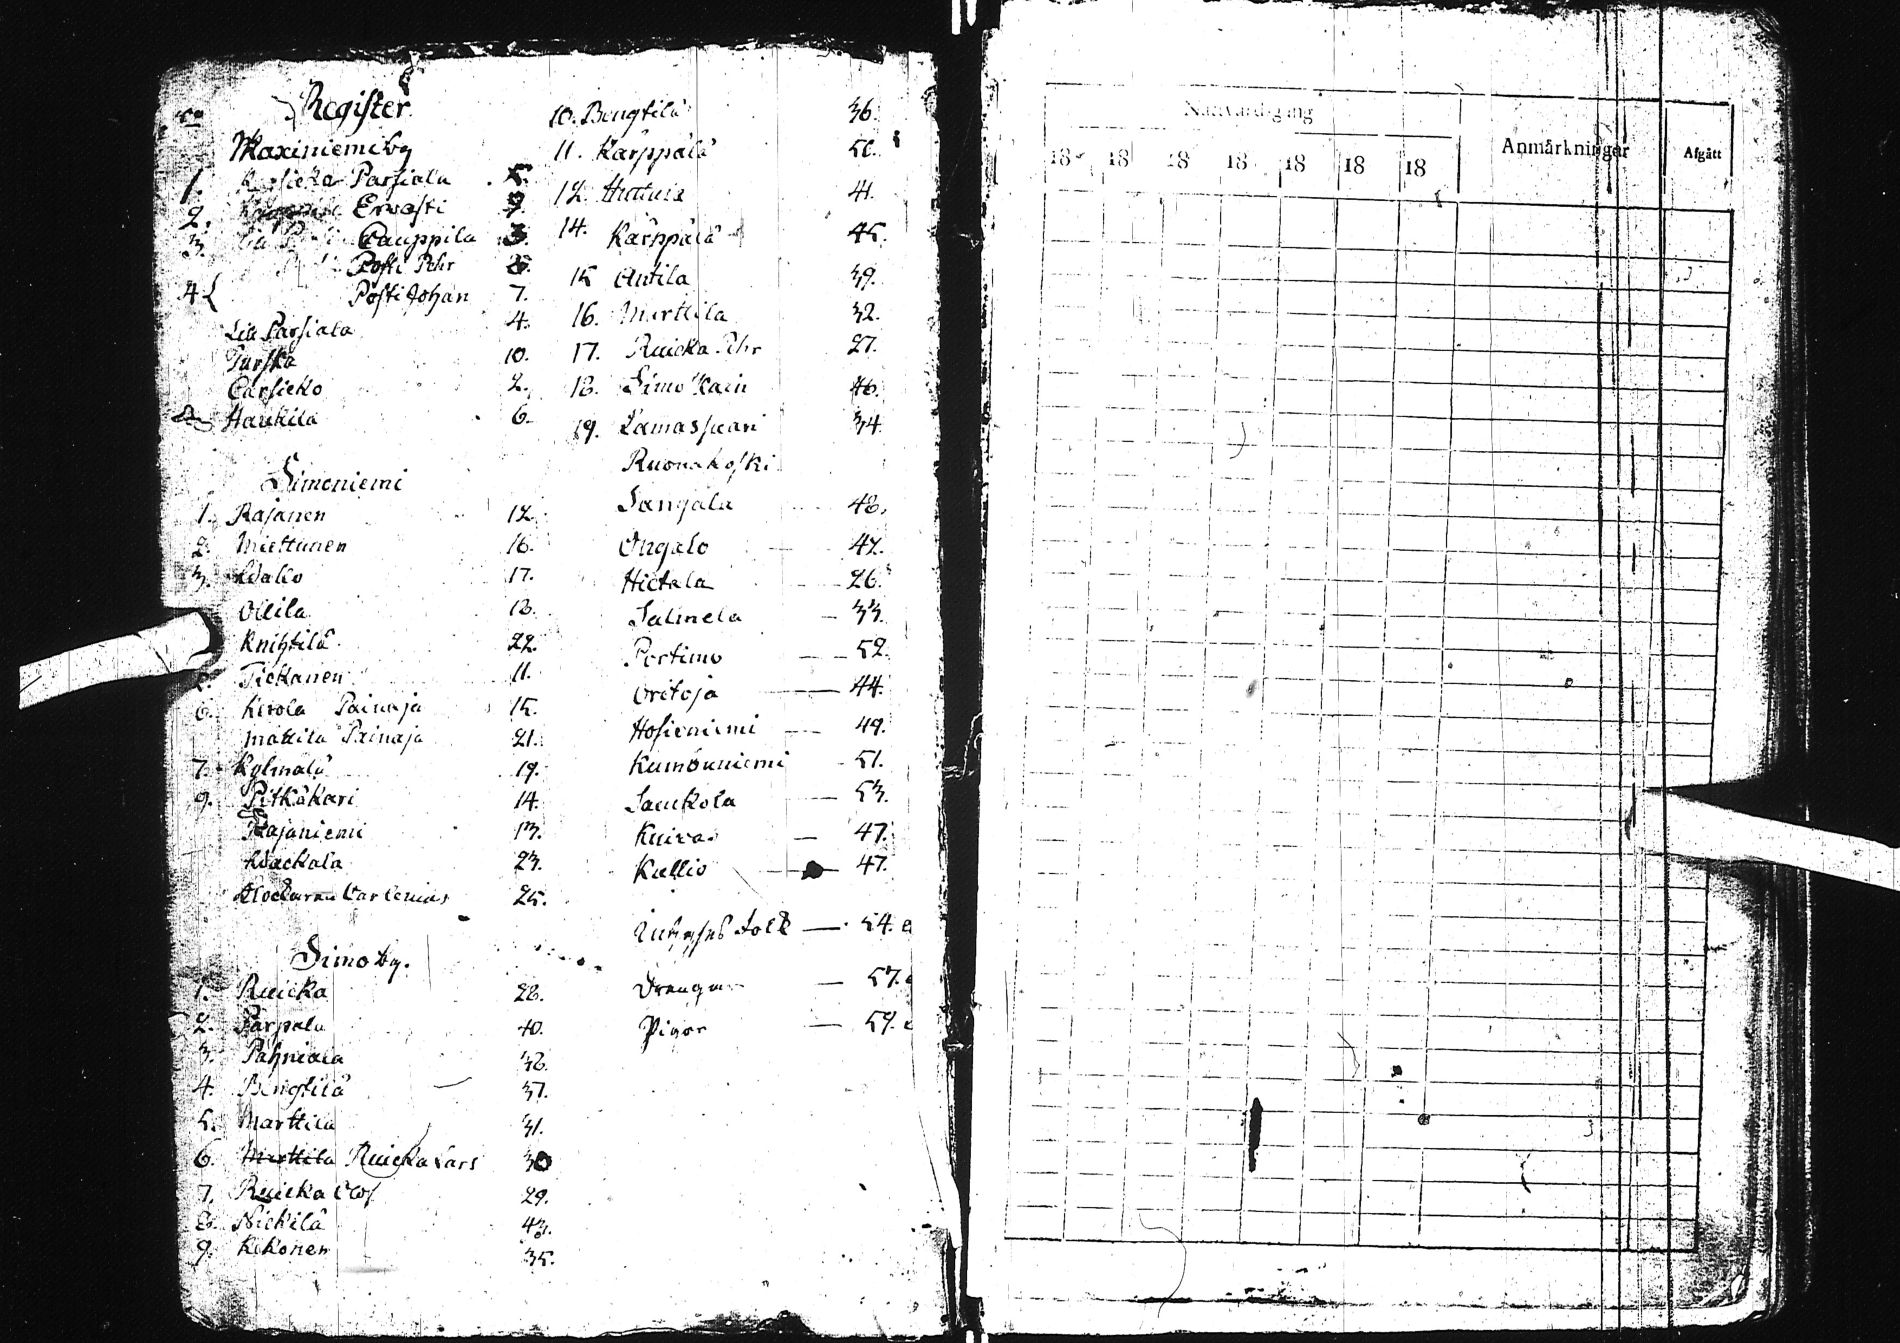 No
Register
Maxiniemi by
1. Karsicko Parsiala 5.
2. Erwasti 9.
3. Cauppila 3.
Posti Pehr 8.
4 { Posti Johan 7.
Lill Parsiala 4.
Turska 10.
Carsicko 2.
Haukila 6.
Simoniemi
1. Rajanen 12.
2. Miettunen 16.
3. Wallo 17.
Ollila 18.
Knihtilä 22.
Tickanen 11.
6. Kerola Painaja 15.
Mattila Painaja 21.
7. Kylmälä 19.
9. Pitkäkari 14.
Rajaniemi 13.
Wäckälä 23.
Klockaren Carlenius 25.
Simo by.
1. Ruicka 28.
2. Parpala 40.
3. Pahniala 38.
4. Bengtilä 37.
5. Marttila 31.
6. Marttila Ruicka Lars 30
7. Ruicka Olof 29.
8. Nickilä 43.
9. Kikonen 35.
10. Bengtilä 36.
11. Karppälä 50.
12. Hattula 41.
14. Karppälä 45.
15 Antila 39.
16. Marttila 32.
17. Ruicka Pehr 27.
18. Simo Karri 46.
19. Lamassaari 34.
Ruonakoski
Sangala 48.
Ongalo 42.
Hietala 26.
Salmela 33.
Portimo 52.
Oritoja 44.
Hosioniemi 49.
Kumöuniemi 51.
Saukola 53.
Kuivas 47.
Kallio 47.
Inhyses Folk 54.
Drängar 57.
Pigor 59.
Nattvardsgång
Anmärkningar
Afgått
18 18 18 18 18 18 18